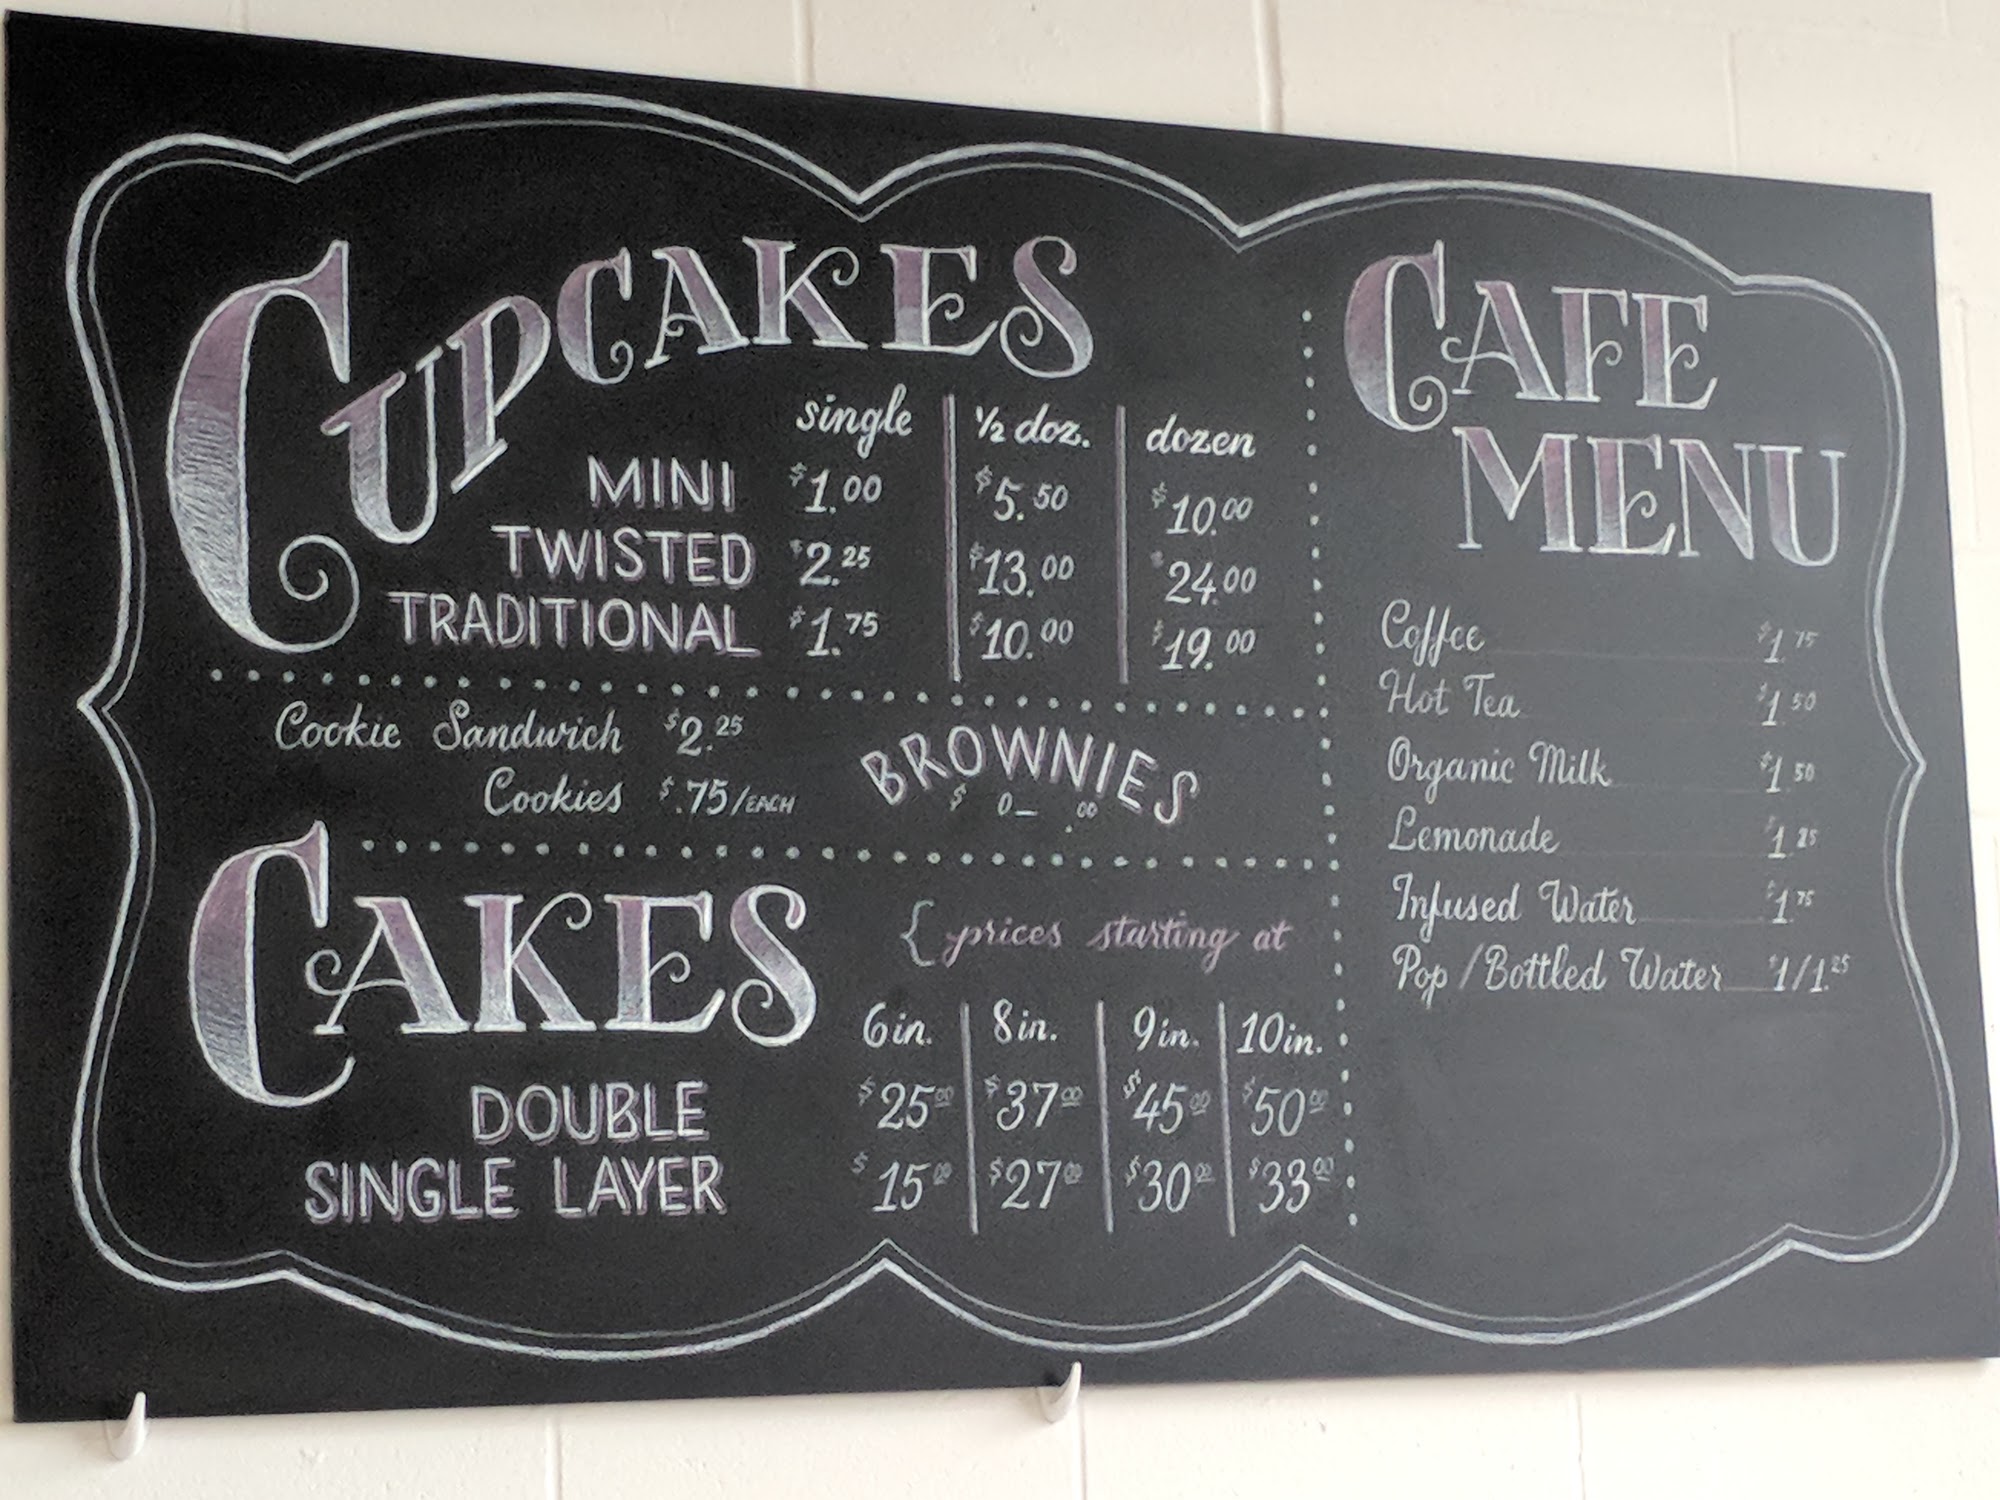 CUPCAKES
single ½ doz. dozen
MINI $1.00 $5.50 $10.00
TWISTED $2.25 $13.00 $24.00
TRADITIONAL $1.75 $10.00 $19.00
Cookie Sandwich $2.25
Cookies $.75/EACH
BROWNIES
CAKES
{ prices starting at
6in. 8in. 9in. 10in.
DOUBLE $25.00 $37.00 $45.00 $50.00
SINGLE LAYER $15.00 $27.00 $30.00 $33.00
CAFE
MENU
Coffee $1.75
Hot Tea $1.50
Organic Milk $1.50
Lemonade
Infused Water $1.75
Pop/Bottled Water $1/1.25